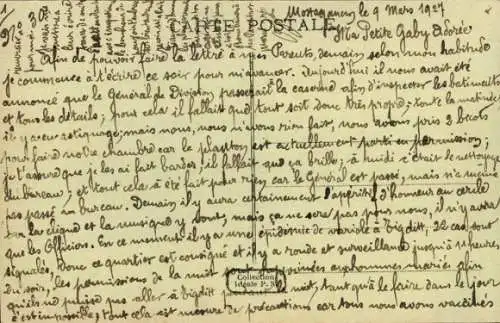 1 CARTE POSTALE
Nº 30 Mostaganem, le 9 Mars 1927
Ma Petite Gaby Adorée
Afin de pouvoir faire la lettre à mes Parents, demain selon mon habitude
je commence à t'écrire ce soir pour m'avancer. Aujourd'hui il nous avait été
annoncé que le Général de Division passerait la caserne afin d'inspecter les batiments
et tous les détails; pour cela il fallait que tout soit donc très propre; toute la matinée
il y a eu astiquage; mais nous, nous n'avons rien fait, nous avons pris 3 bicots
pour faire notre chambre car le planton est actuellement parti en permission;
je t'assure que je les ai fait barder, il fallait que ça brille; à midi c'était le nettoyage
du bureau, et tout cela a été fait pour rien car le Général est passé, mais n'a même
pas passé au bureau. Demain il y aura certainement l'apéritif d'honneur au cercle
la musique y vont, mais ça ne sera pas pour nous, il n'y aura
que les Officiers. En ce moment il y a une épidémie de variole à Tigditt, 12 cas sont
signalés, Donc ce quartier est consigné et il y a ronde et surveillance jusqu'à 11 heures
du soir, les permissions de la nuit hommes mariés afin
qu'ils ne puissent pas aller à Tigditt nuit, tant qu'à le faire dans le jour
c'est impossible, tout cela est mesure de précautions car tous nous avons vaccinés
Collection
Idéale P.S